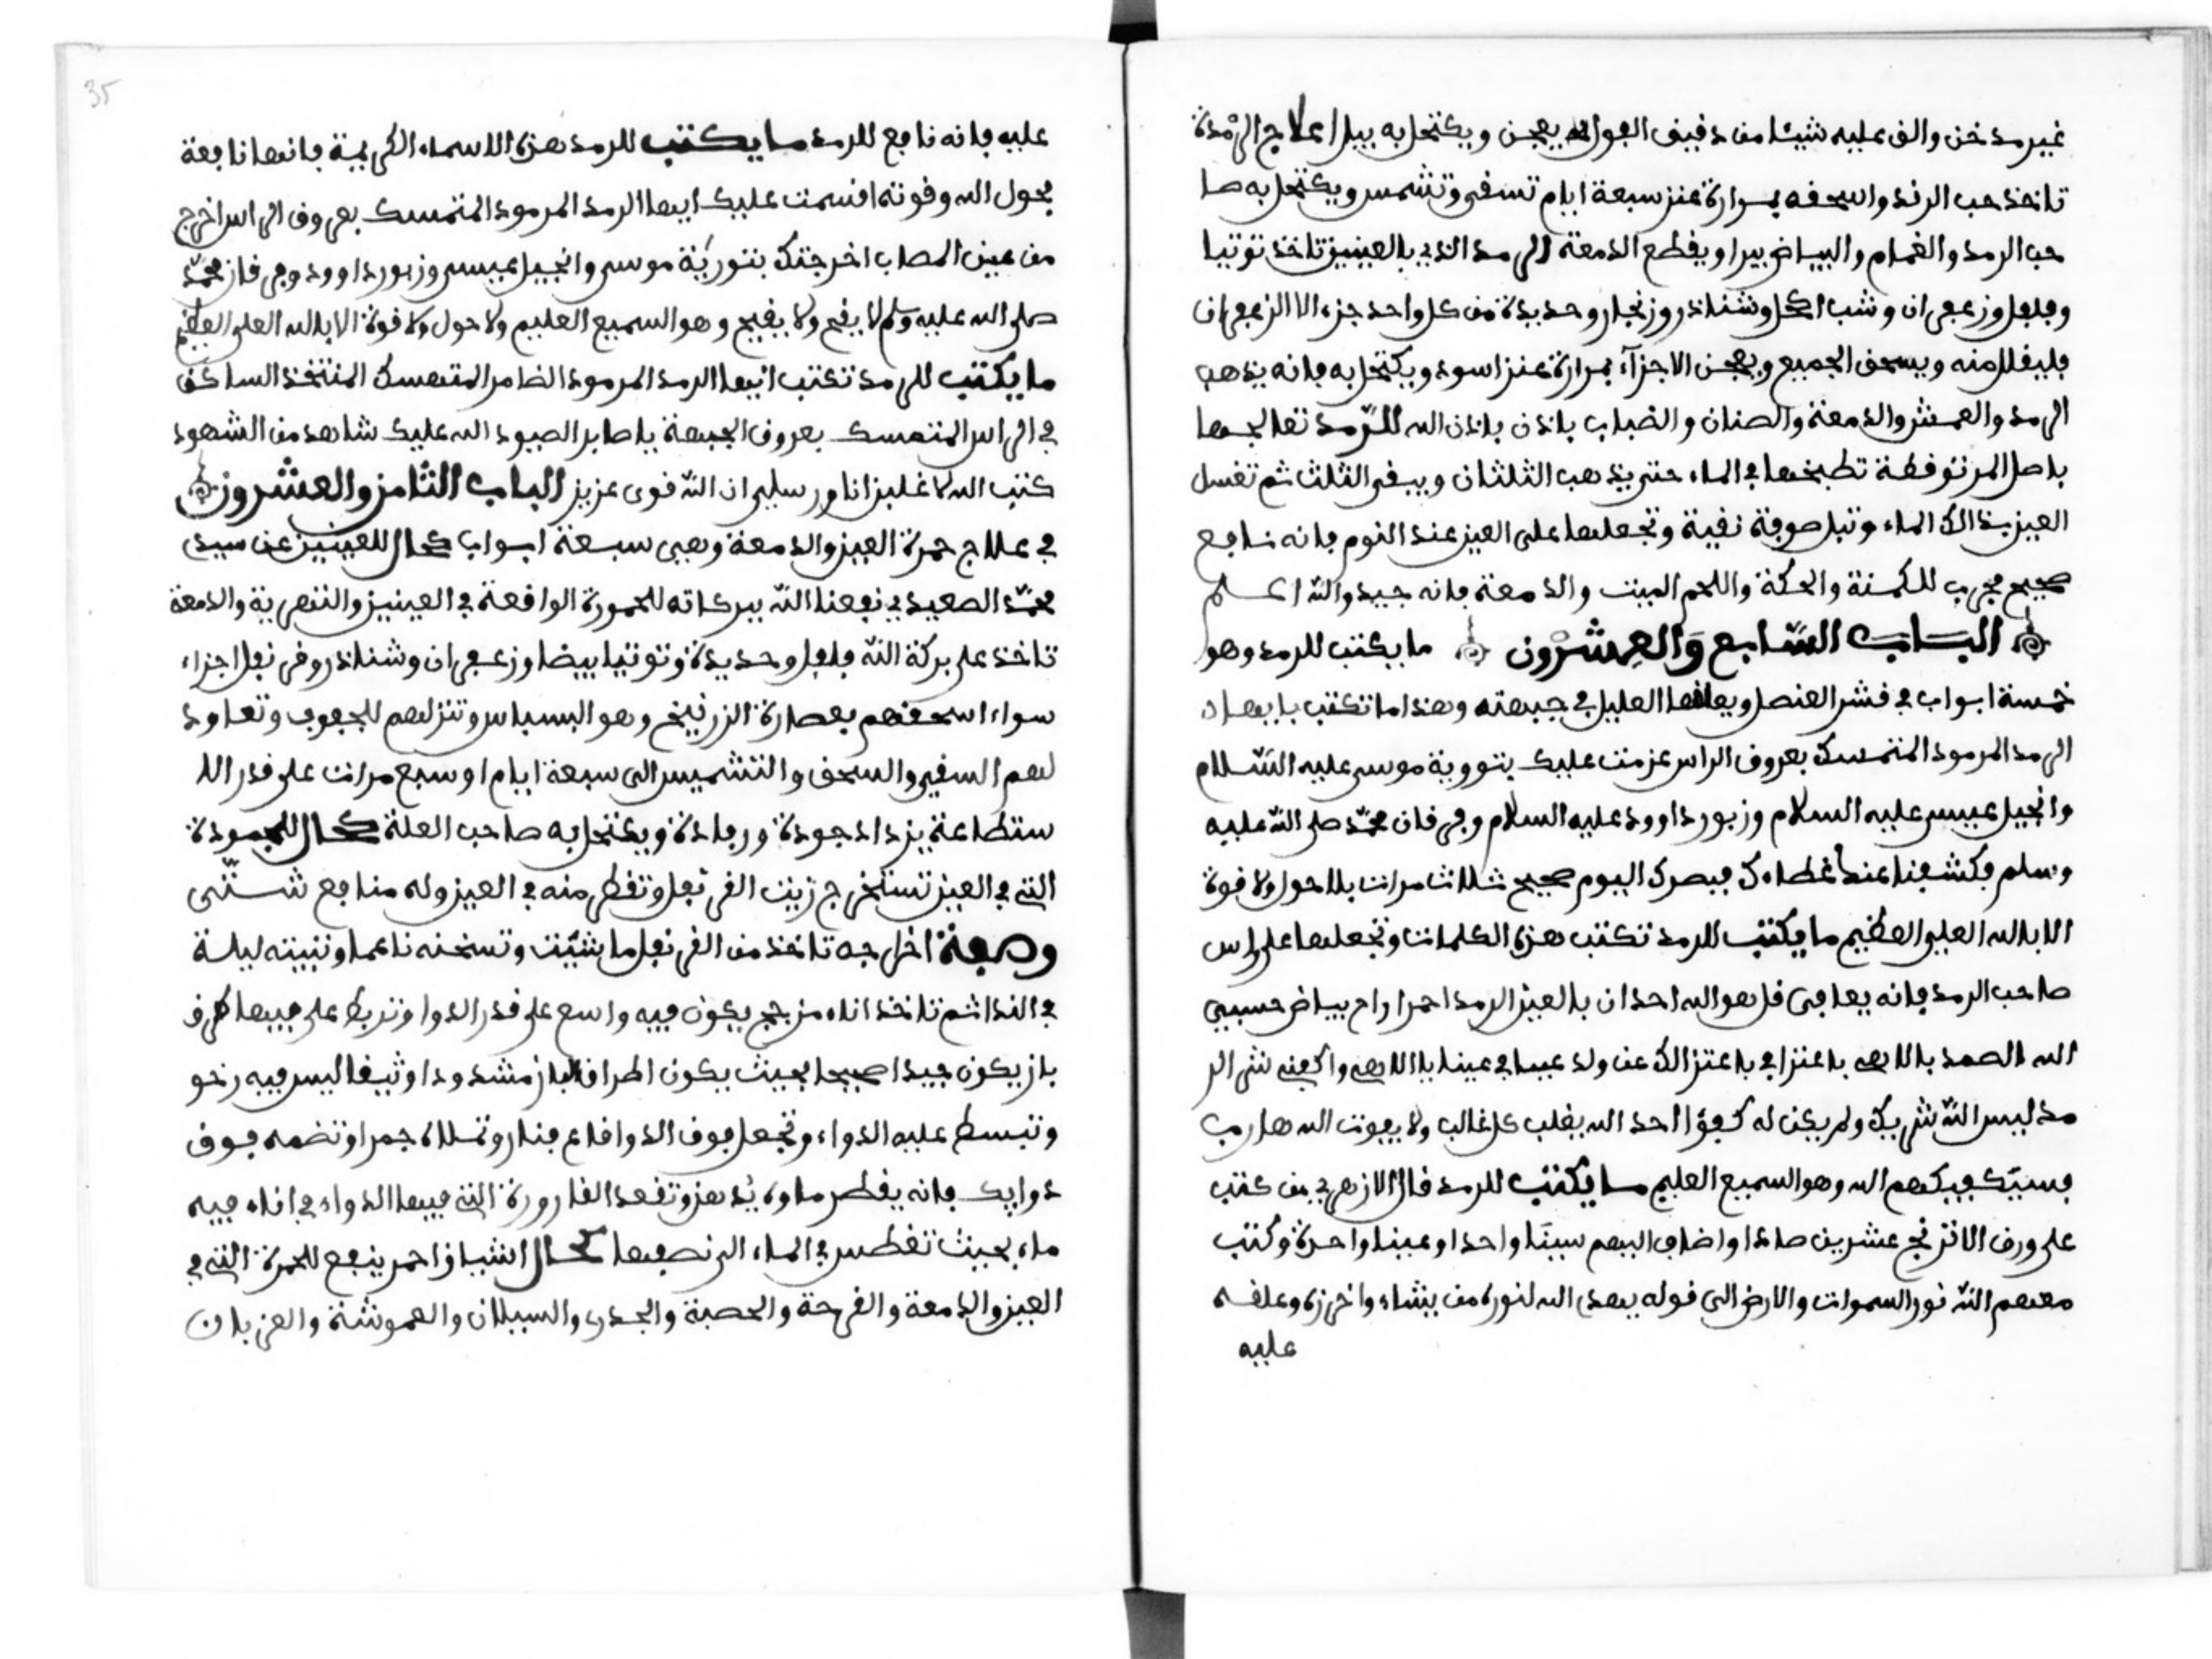 غير مدخن والق عليه شيئا من دقيق الفول يعجن ويكتحل به يبرا علاج الرمدة
تاخذ حب الرند واسحقه بمرارة عنز سبعة ايام تسقى وتشمس ويكتحل به صا
حب الرمد والغمام والبياض يبرا ويقطع الدمعة الرمد الذي بالعينين تاخذ توتيا
وفلفل وزعفران وشب اكحل وشناذر وزنجار وحديدة من كل واحد جزء الا الزعفران
فليقلل منه ويسحق الجميع ويعجن الاجزآء بمرارة عنز اسود ويكتحل به فانه يذهب
الرمد والعمش والدمعة والصنان والضباب باذن باذن الله للرمد تعالجها
باصل المر توقطة تطبخها في الماء حتى يذهب الثلثان ويبقى الثلث ثم تغسل
العين بذالك الماء وتبل صوفة نقية وتجعلها على العين عند النوم فانه نافع
صحيح مجرب للكمنة والحكة واللحم الميت والدمعة فانه جيد والله اعلم
الباب السابع والعشرون ما يكتب للرمد وهو
خمسة ابواب في قشر العنصل ويعلقها العليل في جبهته وهذا ما تكتب يا ايها
الرمد المرمود المتمسك بعروق الراس عزمت عليك بتوروية موسى عليه السلام
وانجيل عيسى عليه السلام وزبور داوود عليه السلام وفرقان محمد صلى الله عليه
وسلم فكشفنا عنك غطاءك فبصرك اليوم صحيح ثلاث مرات بلا حول ولا قوة
الا بالله العلي العظيم ما يكتب للرمد تكتب هذه الكلمات وتجعلها على راس
صاحب الرمد فانه يعافى قل هو الله احد ان بالعين الرمد احمرار ام بياض حسبي
الله الصمد يا الاهي باعتزازي باعتزالك عن ولد عيسا في عينا يا الاهي واكفني شر الر
مد ليس الله شريك ولم يكن له كفؤا احد الله يغلب كل غالب ولا يفوت الله هارب
فسيكفيكهم الله وهو السميع العليم ما يكتب للرمد قال الازهري من كتب
على ورق الاترنج عشرين صادا واضاف اليهم سينا واحدا وعينا واحدة وكتب
معهم الله نور السموات والارض الى قوله يهدي الله لنوره من يشاء واخرزه وعلقه
عليه
35
عليه فانه نافع للرمد ما يكتب للرمد هذه الاسماء الكريمة فانها نافعة
بحول الله وقوته اقسمت عليك ايها الرمد المرمود المتمسك بعروق الراس اخرج
من عين المصاب اخرجتك بتورية موسى وانجيل عيسى وزبور داوود وفرقان محمد
صلى الله عليه وسلم لا يقيح ولا يفيح وهو السميع العليم ولا حول ولا قوة الا بالله العلي العظيم
ما يكتب للرمد تكتب ايها الرمد المرمود الضامر المتمسك المتخذ الساكن
في الراس المتمسك بعروق الجبهة يا صابر الصيود الله عليك شاهد من الشهود
كتب الله لاغلبن انا ورسلي ان الله قوي عزيز الباب الثامن والعشرون
في علاج حمرة العين والدمعة وهي سبعة ابواب كحال للعينين عن سيدي
محمد الصعيدي نفعنا الله ببركاته للحمورة الواقعة في العينين والنهرية والدمعة
تاخذ على بركة الله فلفل وحديدة وتوتيا بيضا وزعفران وشناذر وقرنفل اجزاء
سواء اسحقهم بعصارة الزرنيخ وهو البسباس وتنزلهم للجفوف وتعاود
لهم السقي والسحق والتشميس الى سبعة ايام او سبع مرات على قدر الا
ستطاعة يزداد جودة ورفادة ويكتحل به صاحب العلة كحال للجمودة
التي في العين تستخرج زيت القرنفل وتقطر منه في العين وله منافع شتى
وصفة اخراجه تاخذ من القرنفل ما شئت وتسخنه ناعما وتبيته ليلة
في الندا ثم تاخذ اناء مزجج يكون فيه واسع على قدر الدوا وتربط على فيها طرف
باز يكون جيدا صحيحا بحيث يكون اطراف الباز مشدودا وثيقا ليس فيه رخو
وتبسط عليه الدواء وتجعل فوق الدوا قاع فنار وتملاه جمرا وتضمه فوق
دوايك فانه يقطر ماوه يدهن وتقعد القارورة التي فيها الدواء في اناء فيه
ماء بحيث تغطس في الماء الى نصفها كحال اشياف احمر ينفع للحمرة التي في
العين والدمعة والقرحة والحصبة والجدري والسيلان والعموشة والعزبان